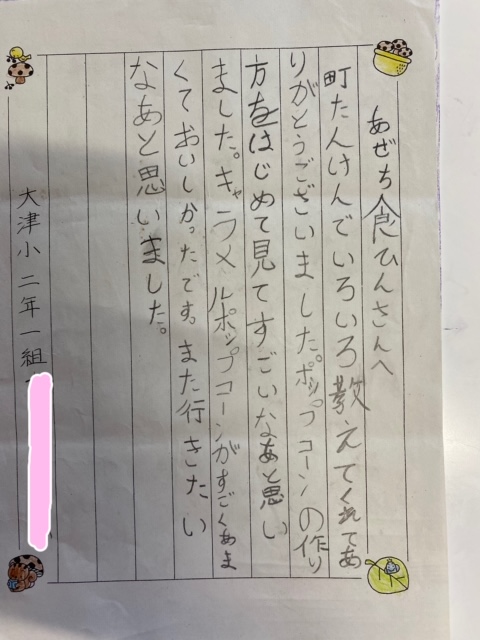 あぜち食ひんさんへ
町たんけんでいろいろ教えてくれてあ
りがとうございました。ポップコーンの作り
方をはじめて見てすごいなあと思い
ました。キャラメルポップコーンがすごくあま
くておいしかったです。また行きたい
なあと思いました。
大津小二年一組